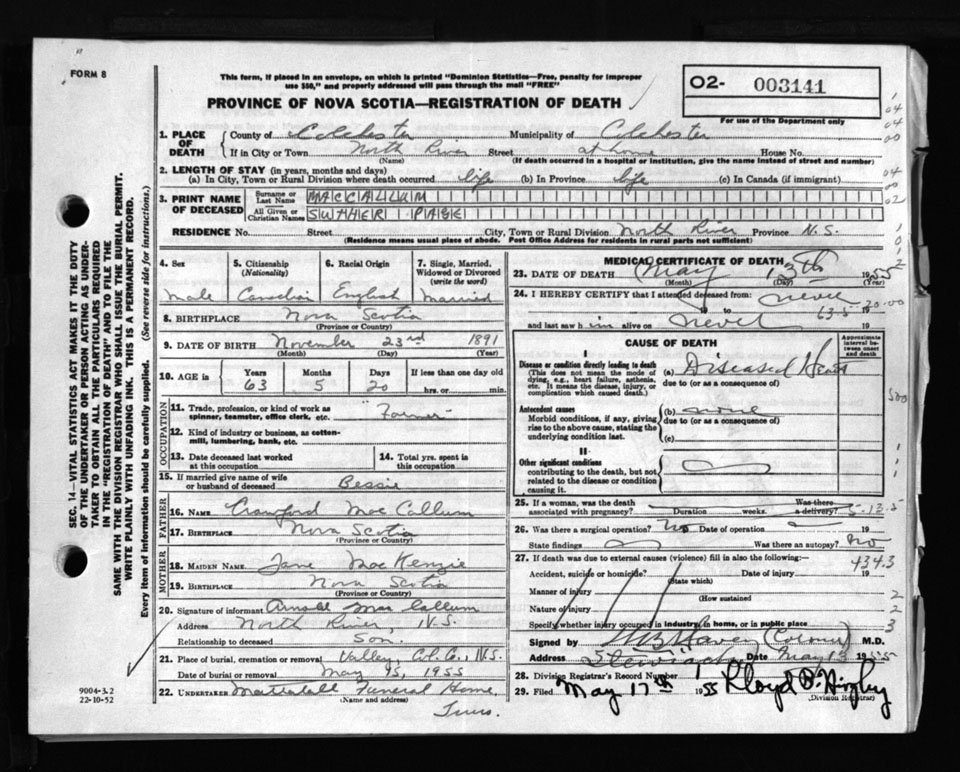 FORM 8
This form, if placed in an envelope, on which is printed "Dominion Statistics—Free, penalty for improper
use $50," and properly addressed will pass through the mail "FREE"
PROVINCE OF NOVA SCOTIA—REGISTRATION OF DEATH
02- 003141
For use of the Department only
1. PLACE OF DEATH County of Colchester Municipality of Colchester
If in City or Town North River Street at home House No.
(Name) (If death occurred in a hospital or institution, give the name instead of street and number)
2. LENGTH OF STAY (in years, months and days)
(a) In City, Town or Rural Division where death occurred life (b) In Province life (c) In Canada (if immigrant)
3. PRINT NAME OF DECEASED Surname or Last Name MACCALLUM
All Given or Christian Names PAGE
RESIDENCE No. Street City, Town or Rural Division North River Province N.S.
(Residence means usual place of abode. Post Office Address for residents in rural parts not sufficient)
4. Sex Male
5. Citizenship (Nationality) Canadian
6. Racial Origin English
7. Single, Married, Widowed or Divorced (write the word) Married
8. BIRTHPLACE Nova Scotia
(Province or Country)
9. DATE OF BIRTH November 23rd 1891
(Month) (Day) (Year)
10. AGE in Years 63 Months 5 Days 20 If less than one day old hrs. or min.
OCCUPATION
11. Trade, profession, or kind of work as spinner, teamster, office clerk, etc. "Farmer"
12. Kind of industry or business, as cotton-mill, lumbering, bank, etc.
13. Date deceased last worked at this occupation
14. Total yrs. spent in this occupation
15. If married give name of wife or husband of deceased Bessie
FATHER
16. NAME Crawford MacCallum
17. BIRTHPLACE Nova Scotia
(Province or Country)
MOTHER
18. MAIDEN NAME Jane MacKenzie
19. BIRTHPLACE Nova Scotia
(Province or Country)
20. Signature of informant Arnold MacCallum
Address North River, N.S.
Relationship to deceased Son.
21. Place of burial, cremation or removal Valley, Col. Co., N.S.
Date of burial or removal May 15, 1955
22. UNDERTAKER Mattatall Funeral Home,
(Name and address)
Truro.
MEDICAL CERTIFICATE OF DEATH
23. DATE OF DEATH May 13th 1955
(Month) (Day) (Year)
24. I HEREBY CERTIFY that I attended deceased from: never
19 to 19
63-5-20-00
and last saw him alive on never 19
CAUSE OF DEATH
Approximate interval between onset and death
I
Disease or condition directly leading to death (a) Diseased Heart
(This does not mean the mode of dying, e.g., heart failure, asthenia, etc. It means the disease, injury, or complication which caused death.)
due to (or as a consequence of)
Antecedent causes (b) none
Morbid conditions, if any, giving rise to the above cause, stating the underlying condition last.
due to (or as a consequence of)
(c)
II
Other significant conditions contributing to the death, but not related to the disease or condition causing it.
25. If a woman, was the death associated with pregnancy? Duration weeks. Was there a delivery?
26. Was there a surgical operation? No Date of operation
State findings Was there an autopsy? No
27. If death was due to external causes (violence) fill in also the following:—
434.3
Accident, suicide or homicide? Date of injury 19
(State which)
Manner of injury
(How sustained)
Nature of injury
Specify whether injury occurred in industry, in home, or in public place
Signed by (Coroner) M.D.
Address Stewiacke Date May 13 1955
28. Division Registrar's Record Number
29. Filed May 17th 1955 Lloyd
(Division Registrar)
SEC. 14—VITAL STATISTICS ACT MAKES IT THE DUTY
OF THE UNDERTAKER OR PERSON ACTING AS UNDERTAKER TO OBTAIN ALL THE PARTICULARS REQUIRED
IN THE "REGISTRATION OF DEATH" AND TO FILE THE
SAME WITH THE DIVISION REGISTRAR WHO SHALL ISSUE THE BURIAL PERMIT.
WRITE PLAINLY WITH UNFADING INK. THIS IS A PERMANENT RECORD.
Every item of information should be carefully supplied. (See reverse side for instructions.)
9004-3.2
22-10-52